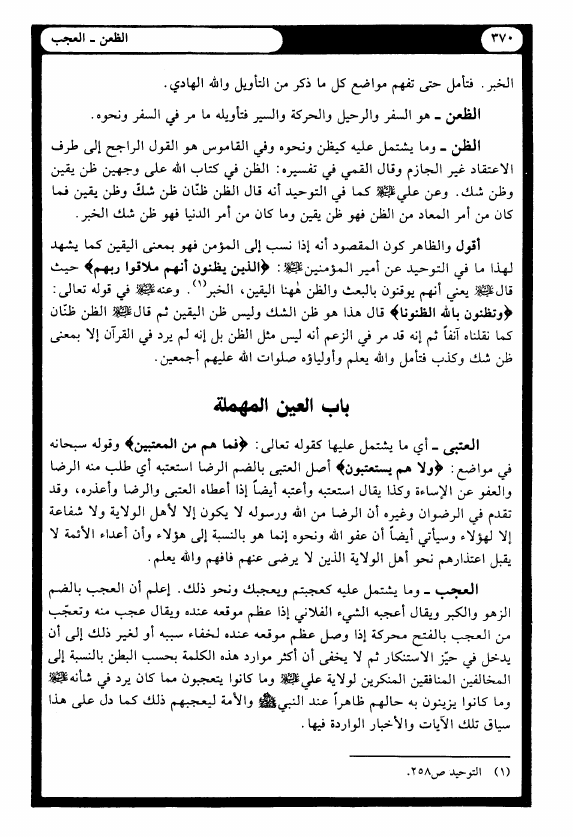 ٣٧٠
الظعن ــ العجب
الخبر. فتأمل حتى تفهم مواضع كل ما ذكر من التأويل والله الهادي.
الظعن ــ هو السفر والرحيل والحركة والسير فتأويله ما مر في السفر ونحوه.
الظن ــ وما يشتمل عليه كيظن ونحوه وفي القاموس هو القول الراجح إلى طرف
الاعتقاد غير الجازم وقال القمي في تفسيره: الظن في كتاب الله على وجهين ظن يقين
وظن شك. وعن علي ﷺ كما في التوحيد أنه قال الظن ظنّان ظن شكّ وظن يقين فما
كان من أمر المعاد من الظن فهو ظن يقين وما كان من أمر الدنيا فهو ظن شك الخبر.
أقول والظاهر كون المقصود أنه إذا نسب إلى المؤمن فهو بمعنى اليقين كما يشهد
لهذا ما في التوحيد عن أمير المؤمنين ﷺ: ﴿الذين يظنون أنهم ملاقوا ربهم﴾ حيث
قال ﷺ يعني أنهم يوقنون بالبعث والظن هٰهنا اليقين، الخبر(١). وعنه ﷺ في قوله تعالى:
﴿وتظنون بالله الظنونا﴾ قال هذا هو ظن الشك وليس ظن اليقين ثم قال ﷺ الظن ظنّان
كما نقلناه آنفاً ثم إنه قد مر في الزعم أنه ليس مثل الظن بل إنه لم يرد في القرآن إلا بمعنى
ظن شك وكذب فتأمل والله يعلم وأولياؤه صلوات الله عليهم أجمعين.
باب العين المهملة
العتبى ــ أي ما يشتمل عليها كقوله تعالى: ﴿فما هم من المعتبين﴾ وقوله سبحانه
في مواضع: ﴿ولا هم يستعتبون﴾ أصل العتبى بالضم الرضا استعتبه أي طلب منه الرضا
والعفو عن الإساءة وكذا يقال استعتبه وأعتبه أيضاً إذا أعطاه العتبى والرضا وأعذره، وقد
تقدم في الرضوان وغيره أن الرضا من الله ورسوله لا يكون إلا لأهل الولاية ولا شفاعة
إلا لهؤلاء وسيأتي أيضاً أن عفو الله ونحوه إنما هو بالنسبة إلى هؤلاء وأن أعداء الأئمة لا
يقبل اعتذارهم نحو أهل الولاية الذين لا يرضى عنهم فافهم والله يعلم.
العجب ــ وما يشتمل عليه كعجبتم ويعجبك ونحو ذلك. إعلم أن العجب بالضم
الزهو والكبر ويقال أعجبه الشيء الفلاني إذا عظم موقعه عنده ويقال عجب منه وتعجّب
من العجب بالفتح محركة إذا وصل عظم موقعه عنده لخفاء سببه أو لغير ذلك إلى أن
يدخل في حيّز الاستنكار ثم لا يخفى أن أكثر موارد هذه الكلمة بحسب البطن بالنسبة إلى
المخالفين المنافقين المنكرين لولاية علي ﷺ وما كانوا يتعجبون مما كان يرد في شأنه ﷺ
وما كانوا يزينون به حالهم ظاهراً عند النبي ﷺ والأمة ليعجبهم ذلك كما دل على هذا
سياق تلك الآيات والأخبار الواردة فيها.
(١) التوحيد ص٢٥٨.